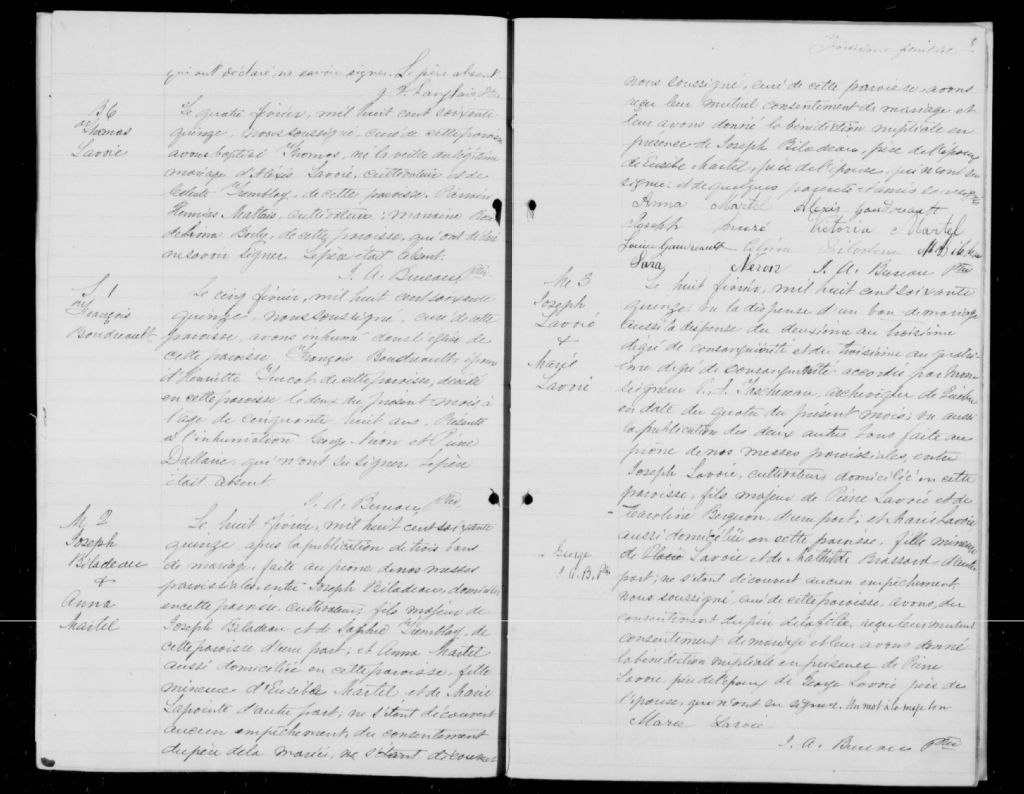 qui ont déclaré ne savoir signer. Le père absent.
Ptre
B6
Thomas
Lavoie
Le quatre février, mil huit cent soixante
quinze, nous soussigné, curé de cette paroisse
avons baptisé Thomas, né la veille du légitime
mariage d'Alexis Lavoie, cultivateur et de
Tremblay, de cette paroisse. Parrain
Hermias Mattais, cultivateur; marraine
Bouly, de cette paroisse, qui ont déclaré
ne savoir signer. Le père était absent.
J. A. Bureau Ptre
S 1
François
Boudreault
Le cinq février, mil huit cent soixante
quinze, nous soussigné, curé de cette
paroisse, avons inhumé dans l'église de
cette paroisse François Boudreault, époux
d'Henriette Turcot de cette paroisse, décédé
en cette paroisse le deux du présent mois à
l'age de cinquante huit ans. Présents
à l'inhumation George et Pièrre
Dallaire, qui n'ont su signer. Le père
était absent.
J. A. Bureau Ptre
M 2
Joseph
Biladeau
&
Anna
Martel
Le huit février, mil huit cent soixante
quinze, après la publication de trois bans
de mariage, faite au prône de nos messes
paroissiales, entre Joseph Biladeau, domicilié
en cette paroisse, cultivateur, fils majeur de
Joseph Biladeau et de Sophie Tremblay, de
cette paroisse d'une part; et Anna Martel
aussi domiciliée en cette paroisse, fille
mineure d'Eusèbe Martel et de Marie
Lapointe d'autre part; ne s'étant découvert
aucun empêchement, du consentement
du père de la mariée, ne s'étant découvert
Troisième feuillet
3
nous soussigné, curé de cette paroisse, avons
reçu leur mutuel consentement de mariage et
leur avons donné la bénédiction nuptiale en
présence de Joseph Biladeau, père de l'époux
de Eusèbe Martel, père de l'épouse, qui n'ont su
signer et de quelques parents & amis soussignés
Anna Martel Alexis Gaudreault
Joseph Victoria Martel
Louise Gaudreault
Sara Neron J. A. Bureau Ptre
M 3
Joseph
Lavoie
&
Marie
Lavoie
Le huit février, mil huit cent soixante
quinze, vu la dispense d'un ban de mariage
aussi la dispense du deuxième au troisième
degré de consanguinité et du troisième au quatriè-
me degré de consanguinité accordés par Mon
seigneur E. A. Taschereau, archevêque de Québec
en date du quatre du présent mois; vu aussi
la publication des deux autres bans faite au
prône de nos messes paroissiales, entre
Joseph Lavoie, cultivateur, domicilié en cette
paroisse, fils majeur de Pièrre Lavoie et de
Caroline Bergeron d'une part; et Marie Lavoie
aussi domiciliée en cette paroisse, fille mineure
George
J. A. B. Ptre
de Lavoie et de Mathilde Brassard d'autre
part; ne s'étant découvert aucun empêchement,
nous soussigné, curé de cette paroisse, avons, du
consentement du père de la fille, reçu leur mutuel
consentement de mariage et leur avons donné
la bénédiction nuptiale en présence de Pièrre
Lavoie père de l'époux de George Lavoie père de
l'épouse, qui n'ont su signer. Un mot à la marge bon
Marie Lavoie
J. A. Bureau Ptre